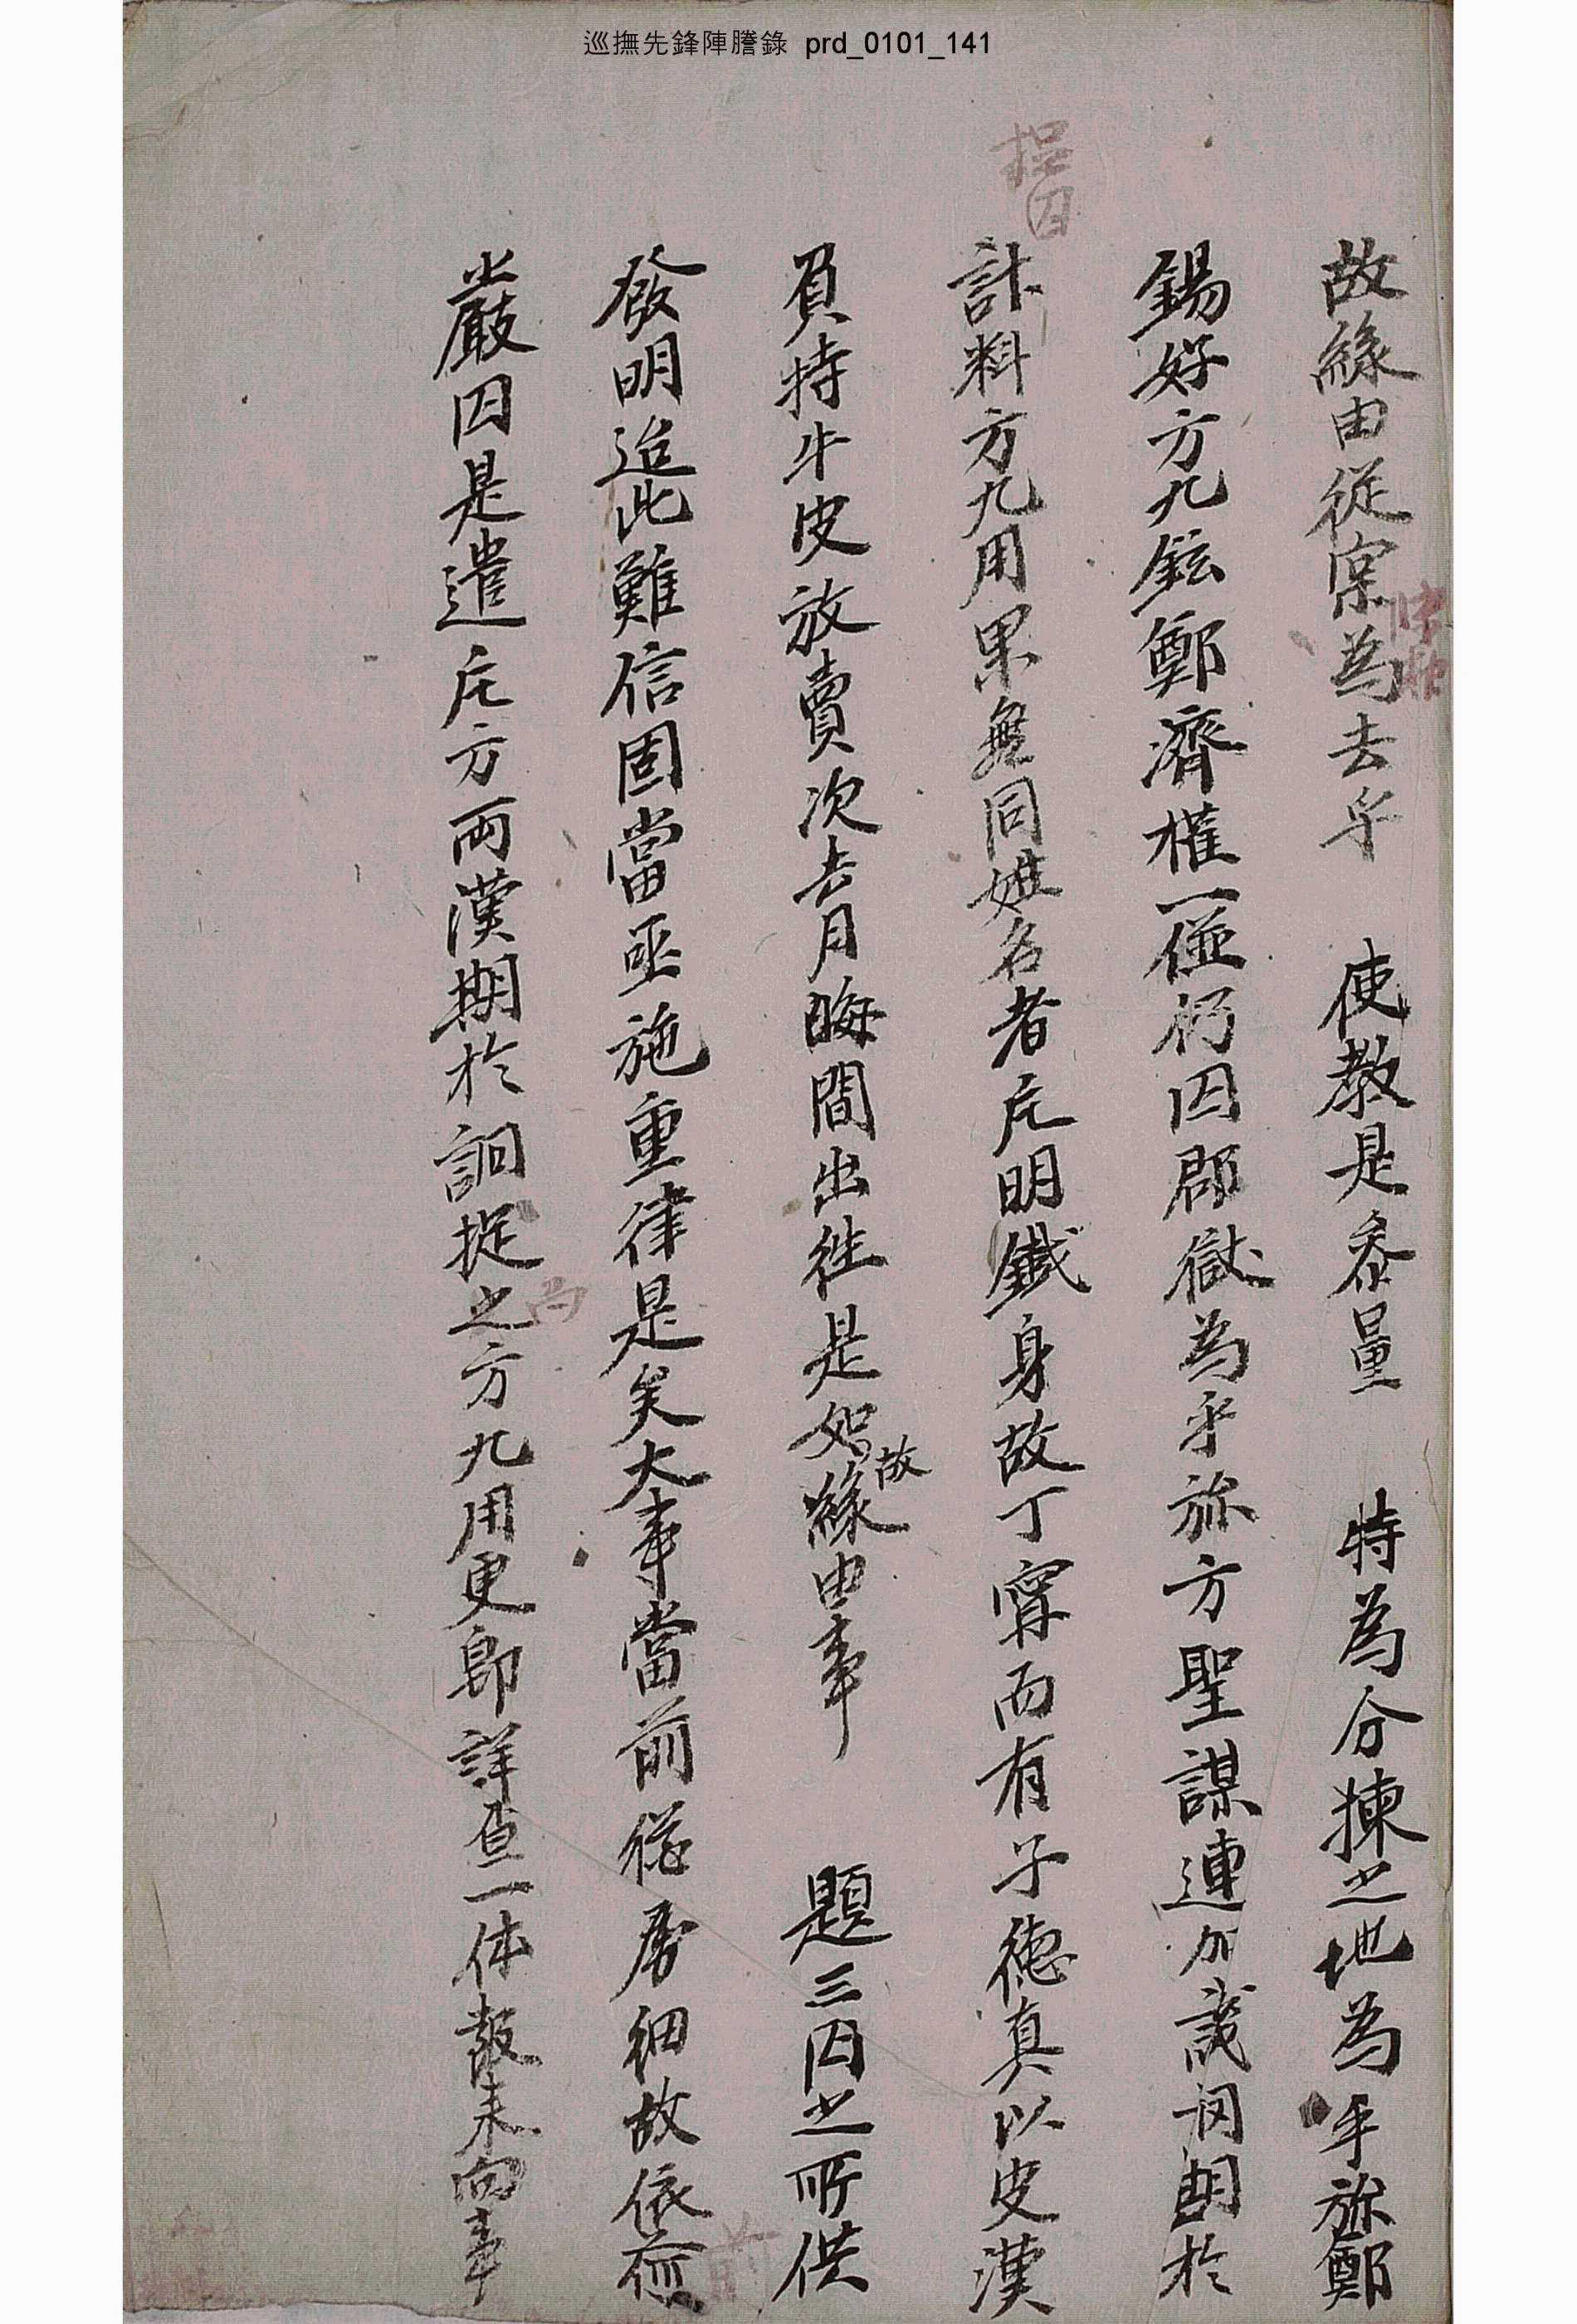 巡撫先鋒陣謄錄 prd_0101_141
故緣由從實為去乎 使教是參量 特為分揀之地為乎旀鄭
錫好方九鉉鄭濟權一倂枷囚郡獄為乎旀方聖謀連加譏詗期於
計料方九用果無同姓名者庄明鐵身故丁寧而有子德真以皮漢
負特牛皮放賣次去月晦間出往是如故緣由事 題三囚之所供
發明迨此難信固當亟施重律是矣大事當前從房細故依前
嚴囚是遣庄方兩漢期於詗捉之方九用更即詳查一体報來向事